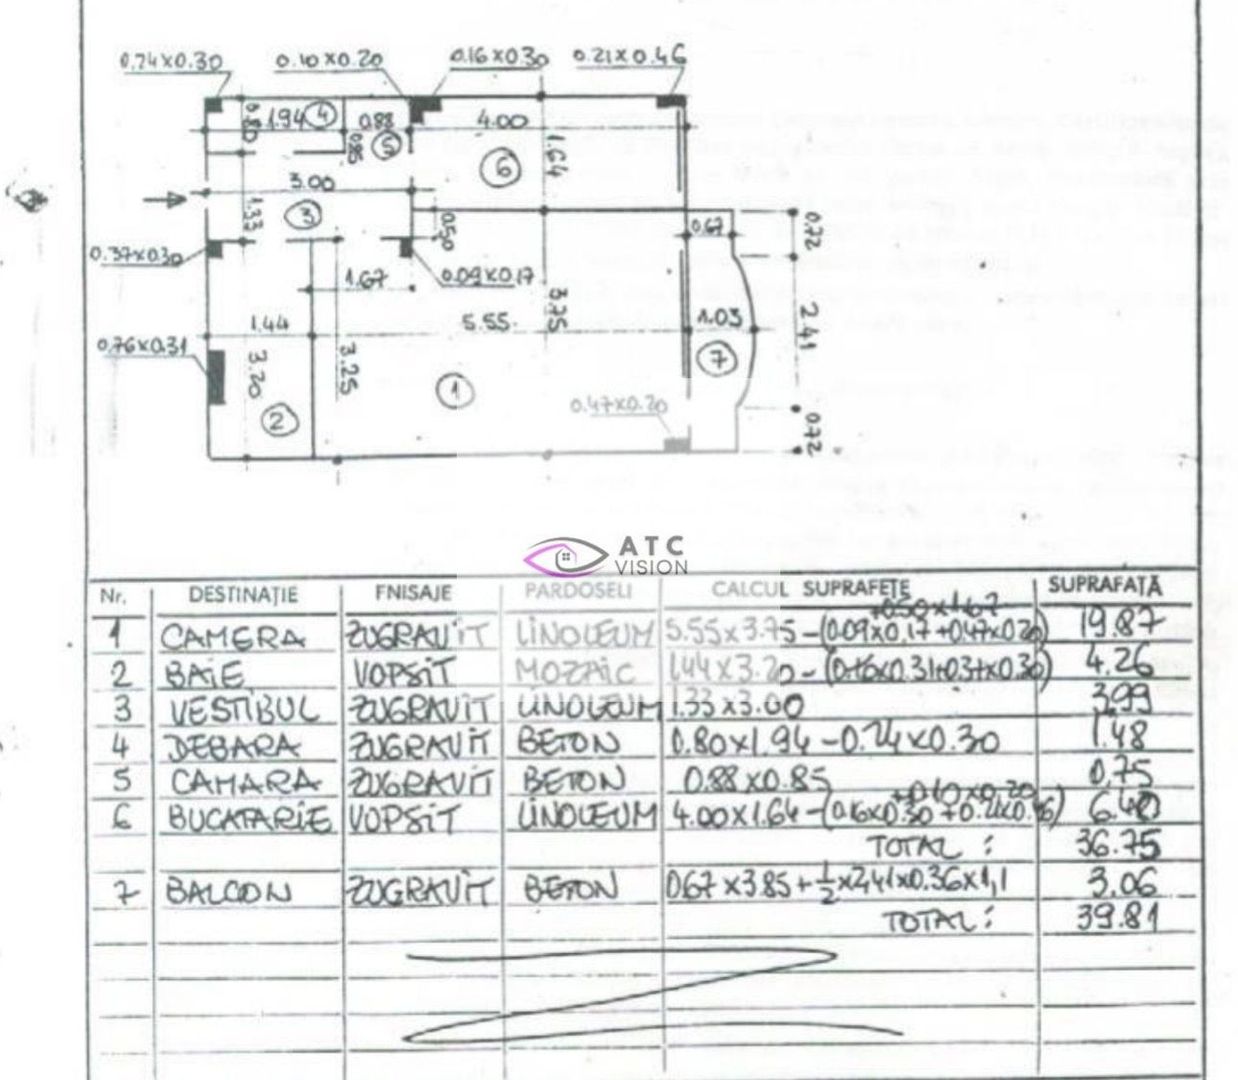 0.24x0.30 0.10x0.20 0.16x0.30 0.21x0.46
0.80 1.94 4 0.88 4.00
0.85 5 6 1.64
3.00
1.33 3 0.50 0.67 0.72
0.37x0.30 1.67 0.09x0.17
1.44 5.55 3.75 1.03 2.41
0.76x0.31 3.20 3.25 7
2 1 0.47x0.20
0.72
ATC
VISION
Nr. DESTINAȚIE FNISAJE PARDOSELI CALCUL SUPRAFEȚE SUPRAFAȚĂ
+0.50x1.67
1 CAMERA ZUGRAVIT LINOLEUM 5.55x3.75-(0.09x0.17+0.47x0.20) 19.87
2 BAIE VOPSIT MOZAIC 1.44x3.20-(0.76x0.31+0.37x0.30) 4.26
3 VESTIBUL ZUGRAVIT LINOLEUM 1.33x3.00 3.99
4 DEBARA ZUGRAVIT BETON 0.80x1.94-0.24x0.30 1.48
5 CAMARA ZUGRAVIT BETON 0.88x0.85 0.75
+0.10x0.20
6 BUCATARIE VOPSIT LINOLEUM 4.00x1.64-(0.16x0.30+0.21x0.46) 6.40
TOTAL: 36.75
7 BALCON ZUGRAVIT BETON 0.67x3.85+½x2,41x0.36x1,1 3.06
TOTAL: 39.81